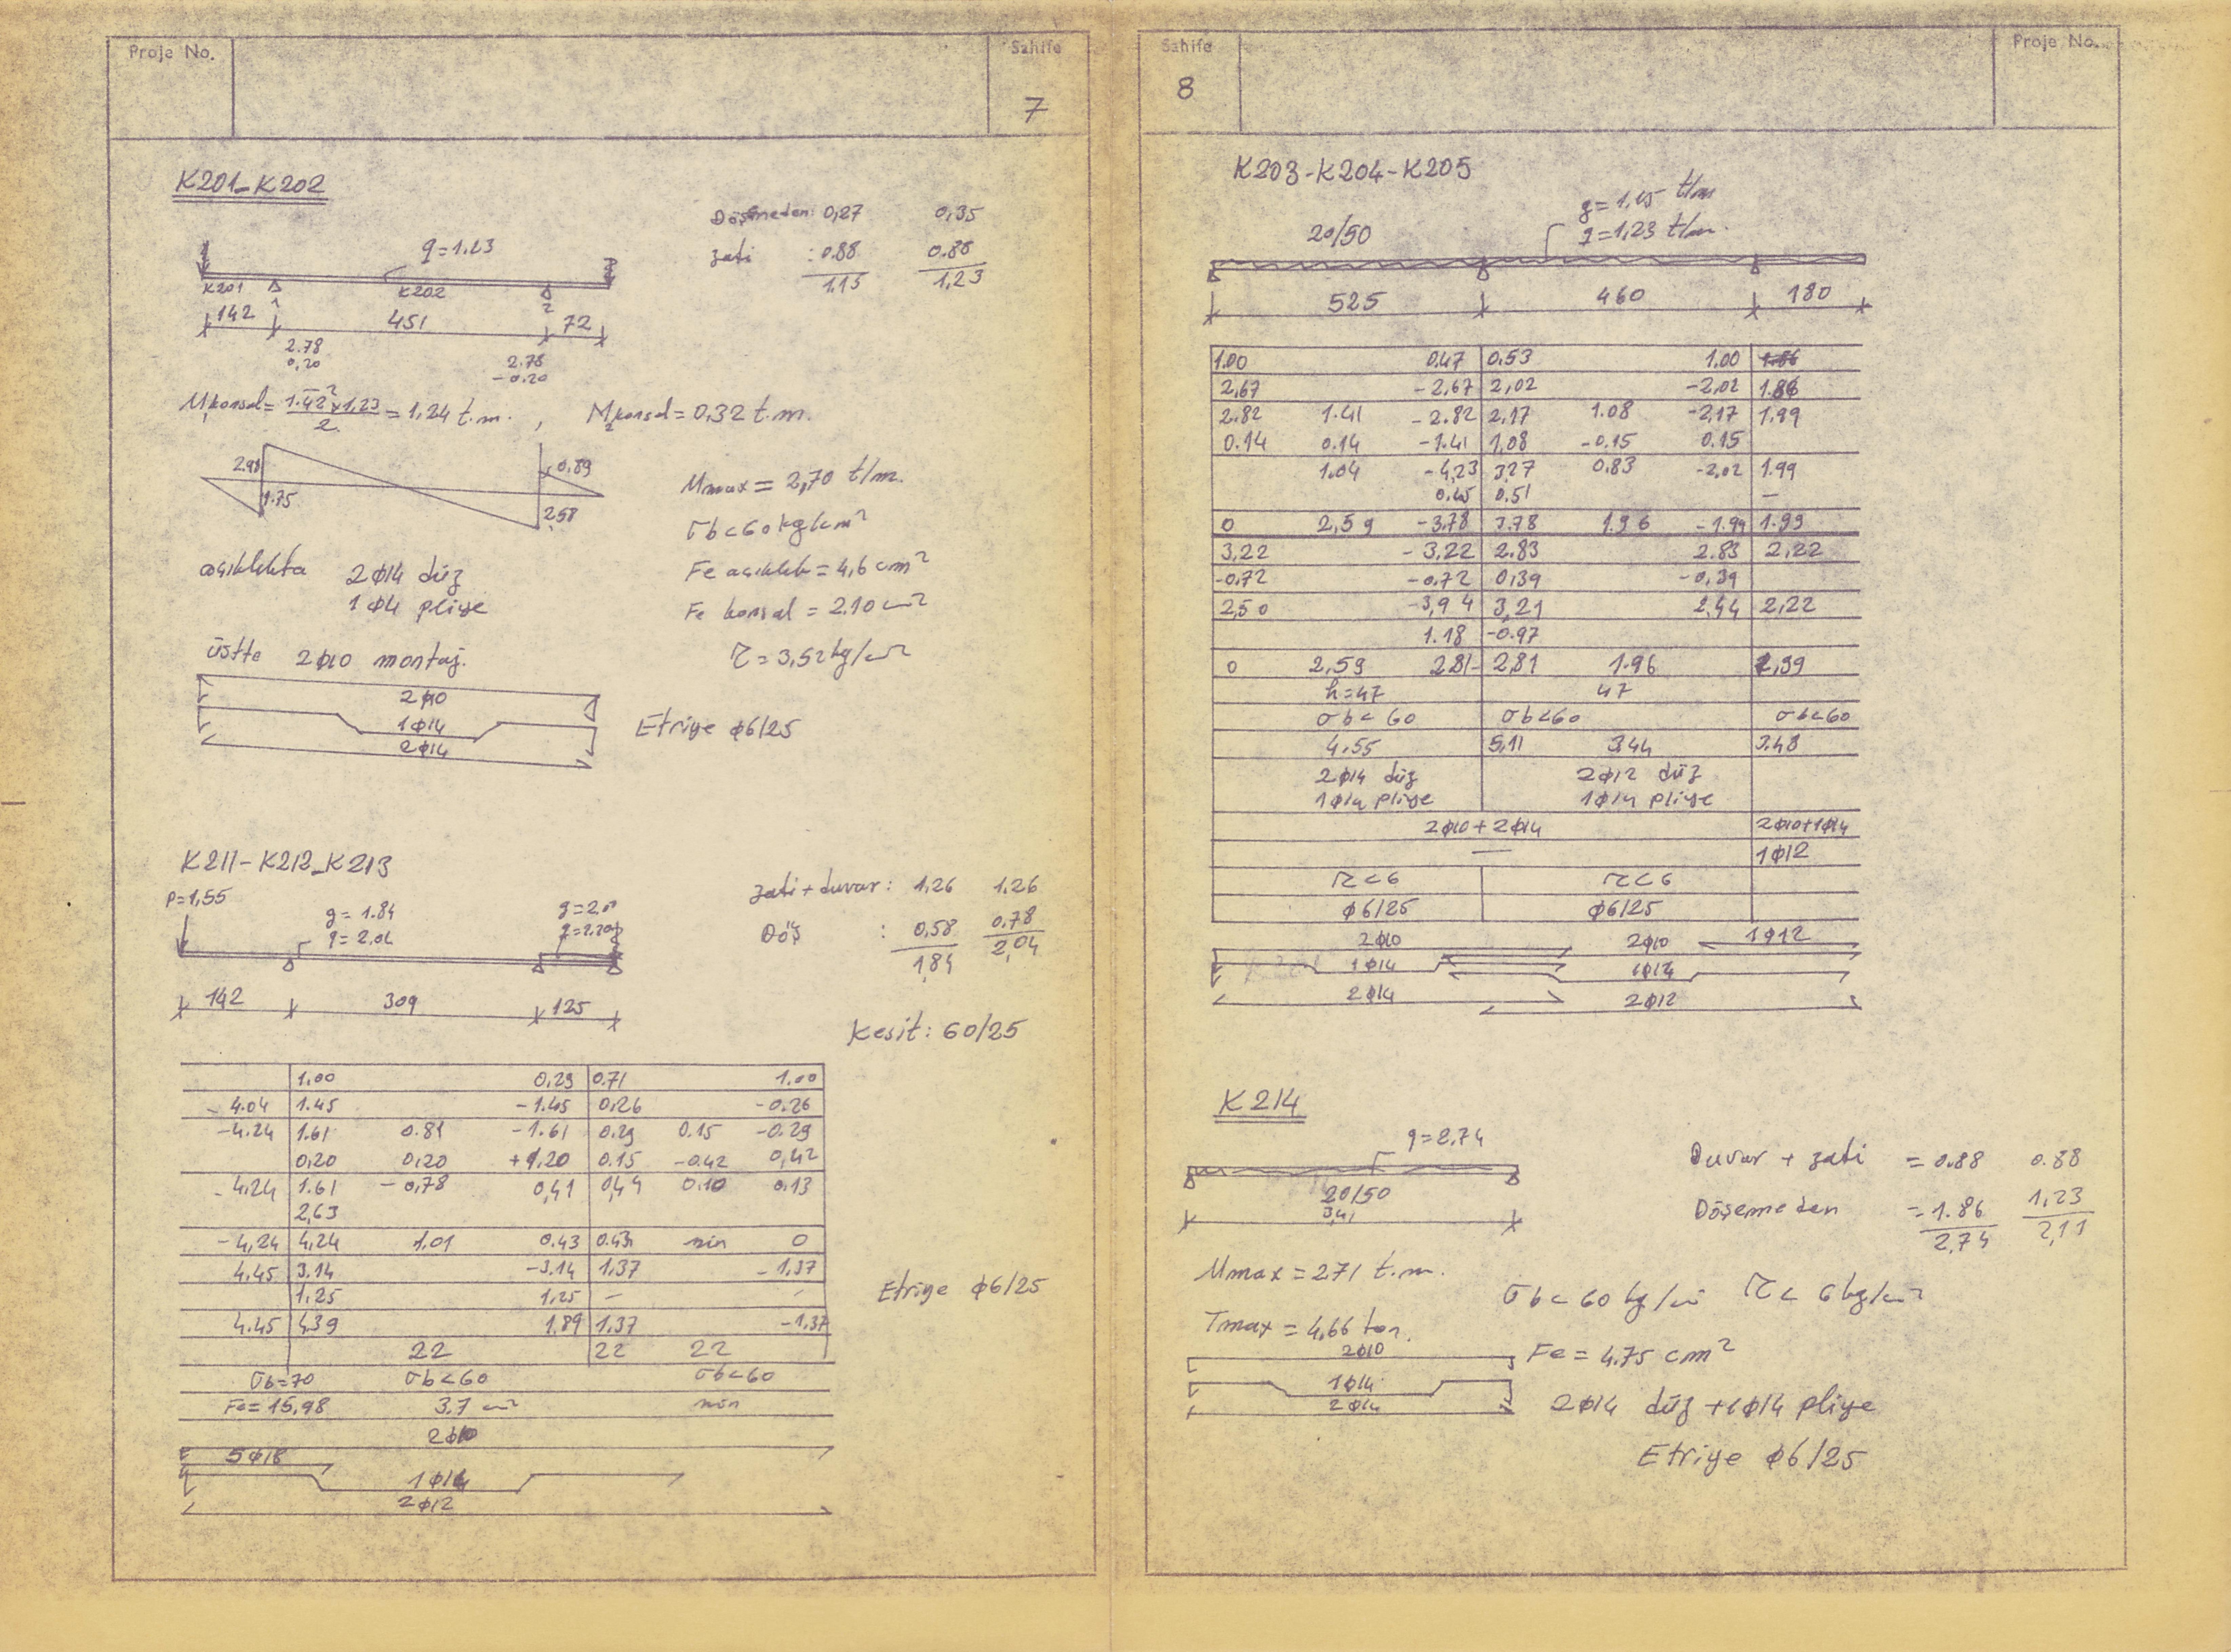 Proje No.
Sahife
7
K201-K202
Döşemeden: 0,27 0,35
zati : 0.88 0.88
1.15 1,23
q=1.23
K201 K202
1 2
142 451 72
2.78
0,20
2.78
-0.20
M₁konsol= 1.42²x1,23 = 1,24 t.m. , M₂konsol=0,32 t.m.
2
2.98 0.89
1.75 2.58
Mmax = 2,70 t/m.
σb<60 kg/cm²
Fe açıklık = 4,6 cm²
Fe konsol = 2.10 cm²
τ = 3,52 kg/cm²
açıklıkta 2ϕ14 düz
1ϕ14 pliye
üstte 2ϕ10 montaj.
2ϕ10
1ϕ14
2ϕ14
Etriye ϕ6/25
K211-K212-K213
P=1,55
g= 1.84
q= 2.04
zati+duvar: 1,26 1.26
Döş : 0,58 0.78
1,84 2,04
142 309 125
Kesit: 60/25
1.00 0.29 0.71 1.00
- 4.04 1.45 - 1.45 0.26 - 0.26
-4.24 1.61 0.81 -1.61 0.29 0.15 -0.29
0,20 0,20 +1.20 0.15 -0.42 0,42
- 4.24 1.61 - 0,78 0,41 0,44 0.10 0.13
2,63
- 4,24 4,24 1.01 0.43 0.43 min 0
4.45 3.14 -3.14 1,37 - 1,37
1,25 1,25 —
4.45 4.39 1.89 1.37 -1.37
22 22 22
σb=70 σb<60 σb<60
Fe= 15,98 3.7 cm² min
2ϕ10
5ϕ18
1ϕ14
2ϕ12
Etriye ϕ6/25
Sahife
8
Proje No.
K203-K204-K205
g=1,15 t/m
q=1,23 t/m.
20/50
525 460 180
1.00 0.47 0.53 1.00
2,67 - 2,67 2,02 -2,02 1.86
2.82 1.41 - 2.82 2,17 1.08 -2,17 1,99
0.14 0.14 -1.41 1,08 -0.15 0.15
1.04 - 4,23 3.27 0.83 -2.02 1.99
0.45 0.51 —
0 2,59 -3.78 3.78 1.96 - 1.99 1.99
3,22 - 3,22 2.83 2.83 2,22
-0.72 -0.72 0,39 -0,39
2,50 -3,94 3,21 2,44 2,22
1.18 -0.97
0 2,59 2.81- 2,81 1.96 1,39
h=47 47
σb< 60 σb<60 σb<60
4.55 5,11 3.44 3.48
2ϕ14 düz 2ϕ12 düz
1ϕ14 pliye 1ϕ14 pliye
2ϕ10+2ϕ14 2ϕ10+1ϕ14
— 1ϕ12
τ<6 τ<6
ϕ6/25 ϕ6/25
2ϕ10 2ϕ10 1ϕ12
1ϕ14 1ϕ14
2ϕ14 2ϕ12
K214
q=2.74
20/50
3,41
Duvar + zati = 0.88 0.88
Döşemeden = 1.86 1,23
2,74 2,11
Mmax = 2.71 t.m.
σb< 60 kg/cm² τ < 6 kg/cm²
Tmax = 4,66 ton.
Fe = 4.75 cm²
2ϕ10
1ϕ14
2ϕ14
2ϕ14 düz +1ϕ14 pliye
Etriye ϕ6/25